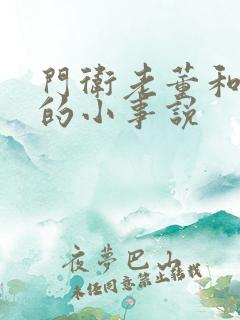 門衛老董和
的小事說
夜夢巴山
未經同意禁止轉載